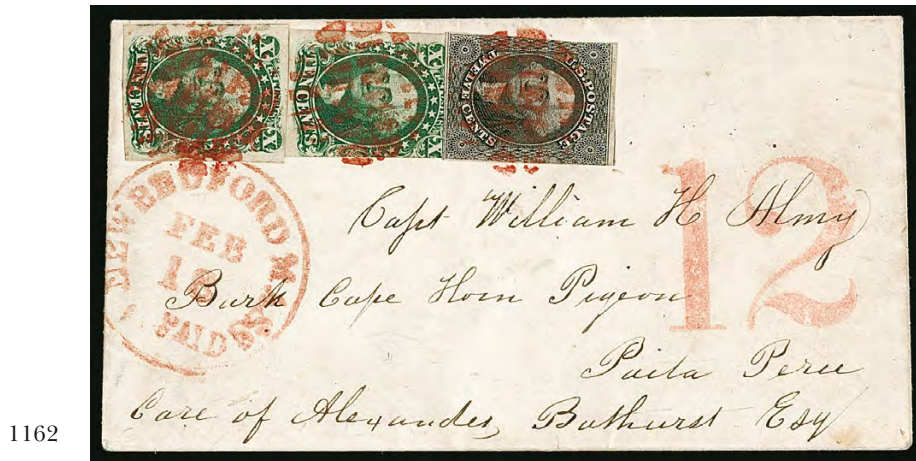 TEN CENTS X X
TEN CENTS X X
U.S. POSTAGE TWELVE CENTS
NEW BEDFORD MASS
FEB
PAID
12
Capt William H Almy
Bark Cape Horn Pigeon
Paita Peru
Care of Alexander Bathurst Esq
1162